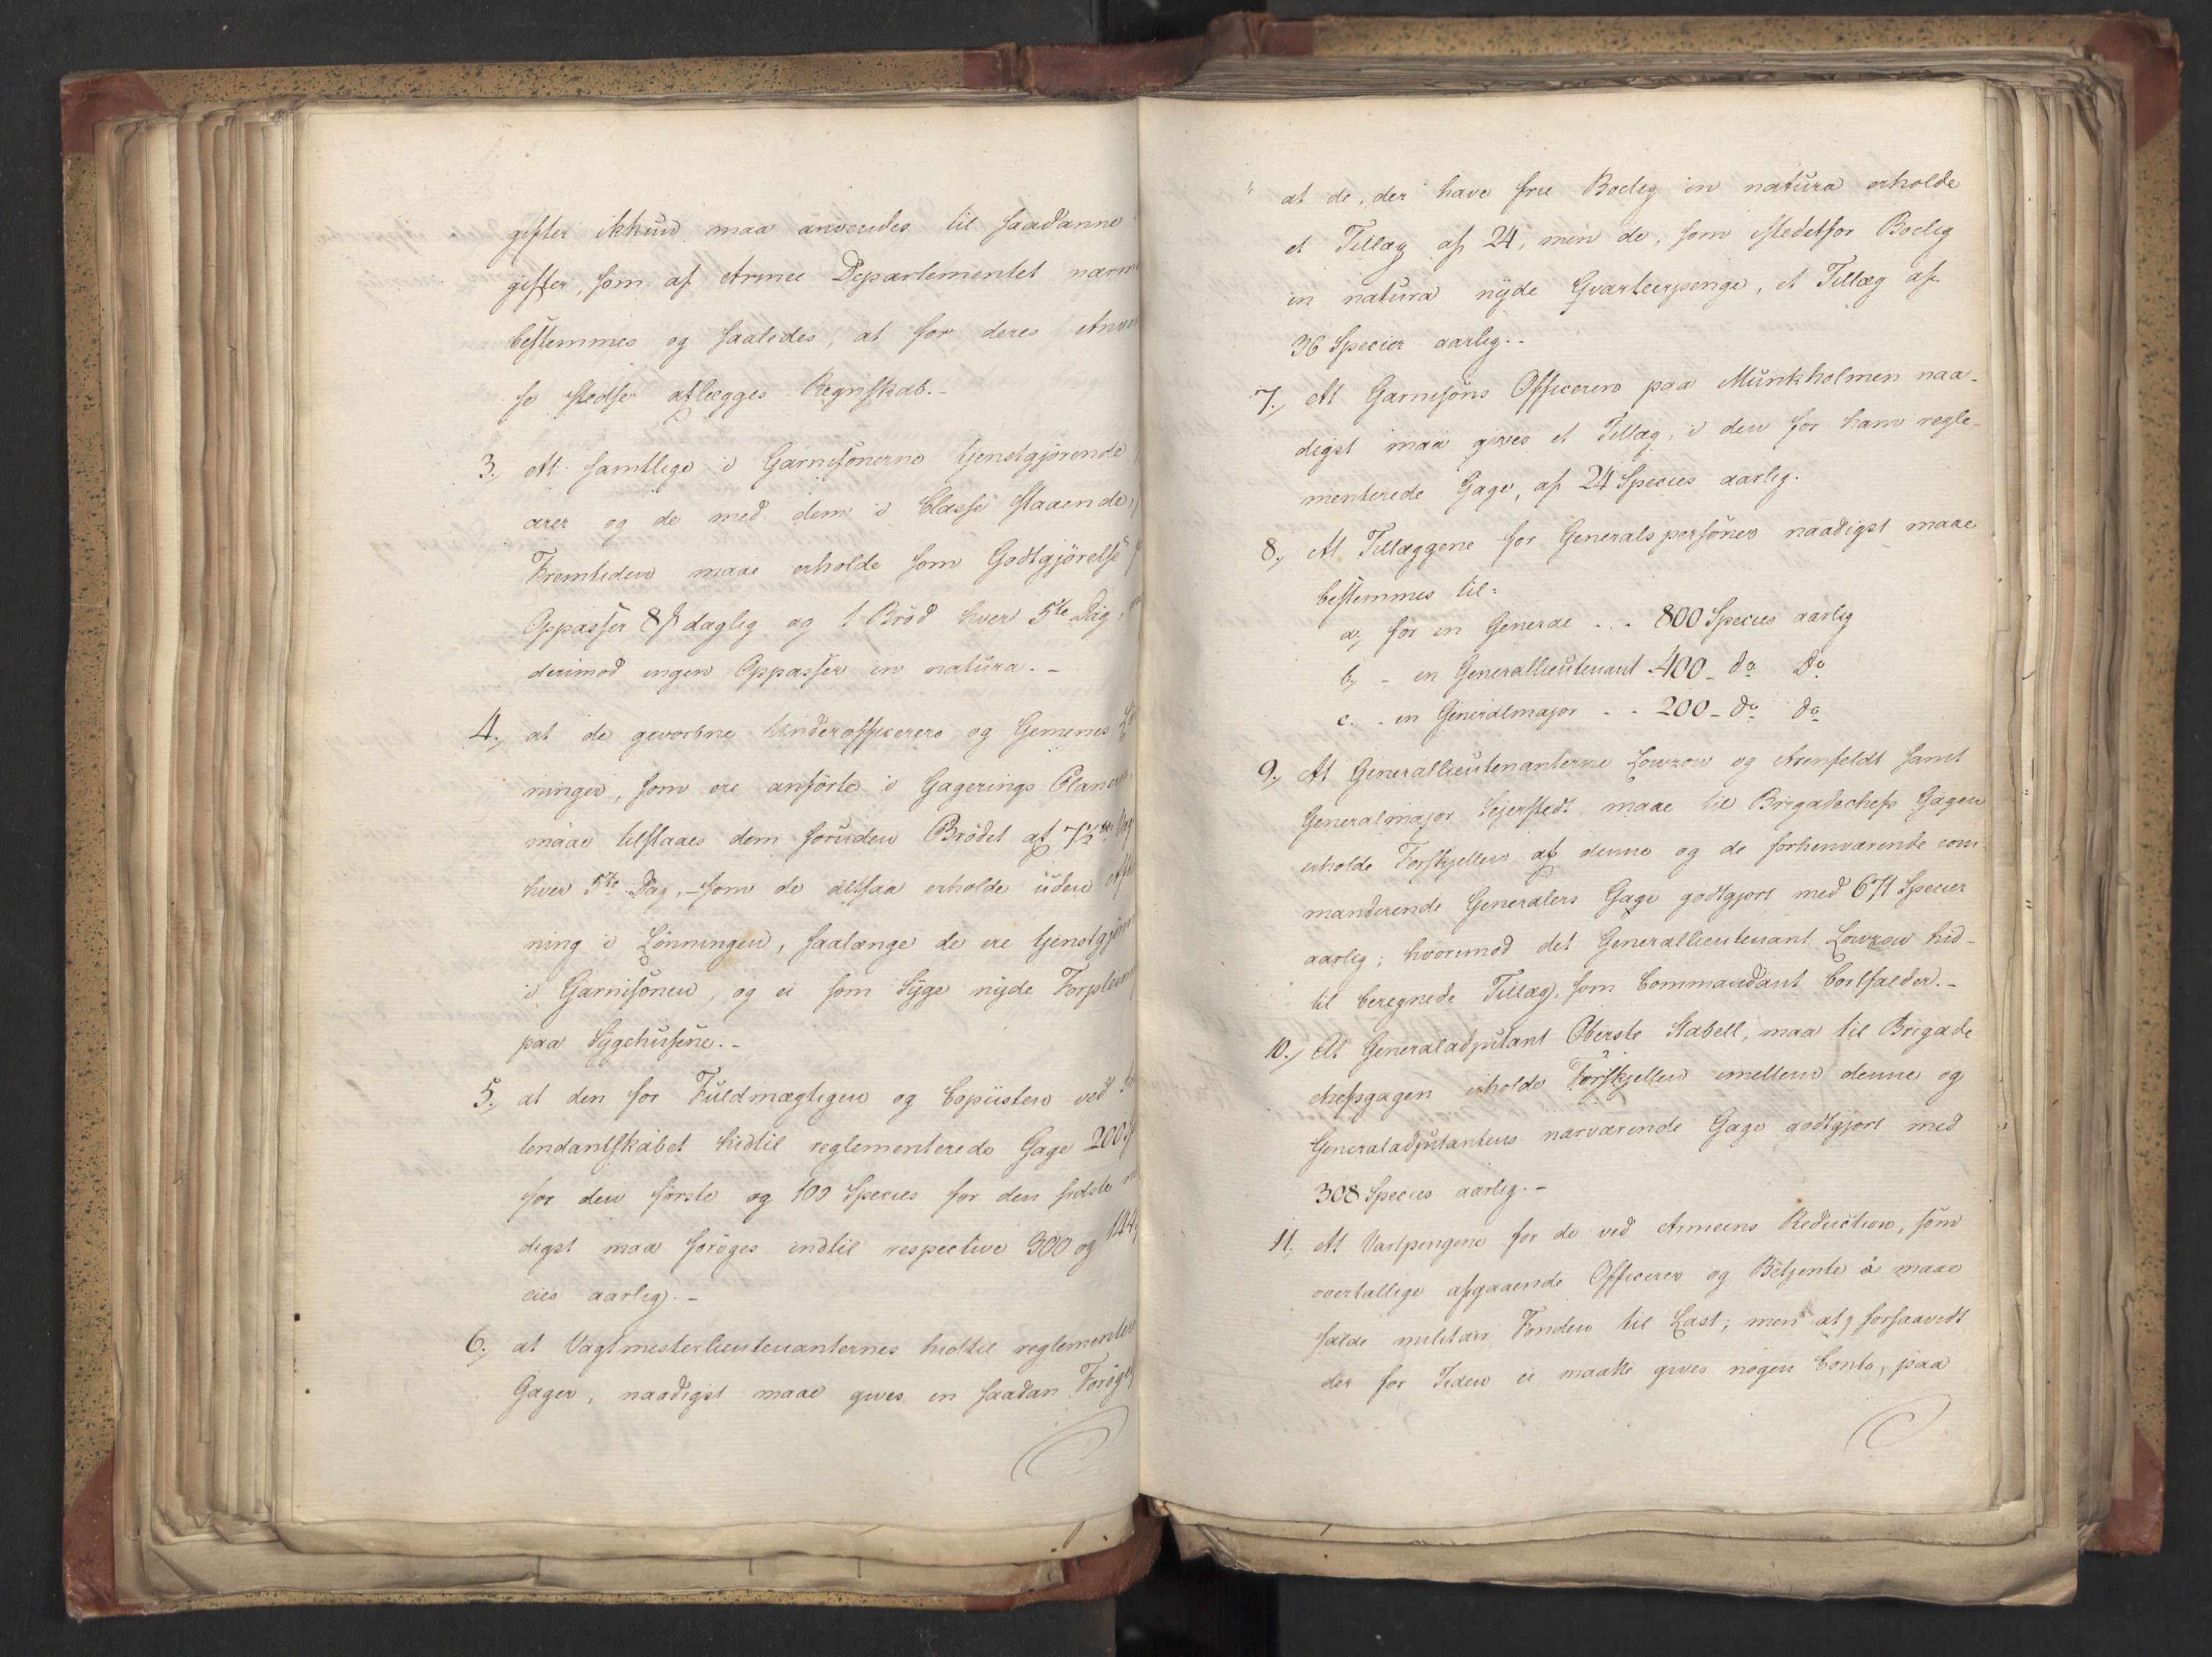 gifter ikkun maa anvendes til saadanne
gifter, som af Armee Departementet nærm
bestemmes og saaledes, at for deres Anven
se stedse aflægges Regnskab.-
3., At samtlige i Garnisonerne tjenstgjörende
ærer og de med dem i Classe staaende,
Fremtiden maae erholde som Godtgjörelse
Oppasser 8 ß daglig og 1 Bröd hver 5te Dag,
derimod ingen Oppasser in natura.-
4., at de gevorbne Underofficerers og Gemenes Lön
ninger, som ere anförte i Gagerings Planerne,
maae tilstaaes dem foruden Brödet af 7½
hver 5te Dag,- som de altsaa erholde uden
ning i Lönningen, saalænge de ere tjenstgjören
i Garnisonen, og ei som Syge nyde Forplein
paa Sygehusene.-
5., at den for Fuldmægtigen og Copiisten ved
tendantskabet hidtil reglementerede Gage 200
for den förste og 100 Species for den sidste
digst maa foröges indtil respective 300 og 144
cies aarlig.-
6., at Vagtmesterlieutenanternes hidtil reglementer
Gager, naadigst maae gives en saadan Foröge
at de, der have frie Boelig in natura erholde
et Tillæg af 24, men de, som istedetfor Boelig
in natura nyde Qvarteerpenge, et Tillæg af
36 Specier aarlig.-
7., At Garnisons Officeren paa Munkholmen naa-
digst maa gives et Tillæg, i den for ham regle-
menterede Gage, af 24 Species aarlig.
8., At Tillæggene for Generalspersoner naadigst maae
bestemmes til:
a, for en General . . - 800 Species aarlig
b, - en Generallieutenant - 400 - do do
c. - en Generalmajor - - 200 - do do
9., At Generallieutenanterne Lowzow og Arenfeldt samt
Generalmajor Sejersted maae til Brigadechefs Gagen
erholde Forskjellen af denne og de forhenværende com
manderende Generalers Gage godtgjort med 671 Specier
aarlig; hvorimod det Generallieutenant Lowzow hid-
til beregnede Tillæg, som Commandant bortfalder.-
10., At Generaladjutant Oberste Stabell, maa til Brigade
chefsgagen erholde Forskjellen imellem denne og
Generaladjutantens nærværende Gage godtgjort med
308 Species aarlig.-
11., At Vartpengene for de ved Armeens Reduction, som
overtallige afgaaende Officerer og Betjente ei maae
falde militair Fonden til Last; men at, forsaavidt
der for Tiden ei maatte gives nogen Conto, paa